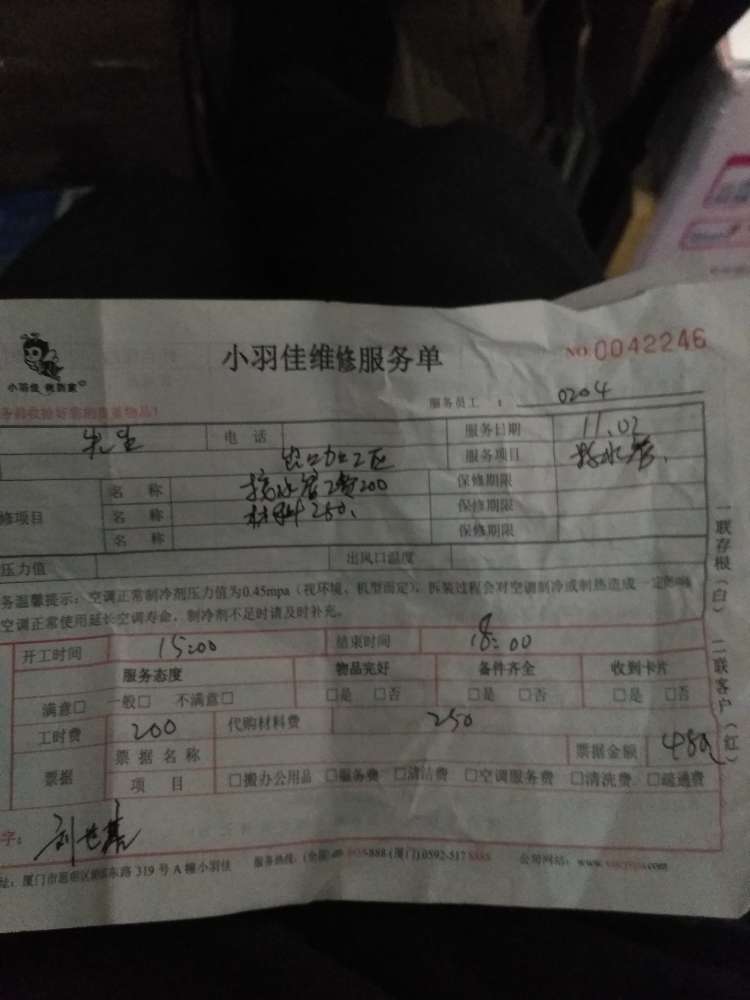 小羽佳维修服务单
NO:0042246
小羽佳 做到家
服务员工: 0204
务必收拾好您的贵重物品!
先生 电 话 服务日期 11.02
服务项目 水管
名 称 接水管工费200 保修期限
修项目 名 称 材料250 保修期限
名 称 保修期限
压力值 出风口温度
务温馨提示:空调正常制冷剂压力值为0.45mpa(视环境、机型而定),拆装过程会对空调制冷或制热造成一定
空调正常使用延长空调寿命,制冷剂不足时请及时补充。
一联存根(白) 二联客户(红)
开工时间 15:00 结束时间 18:00
服务态度 物品完好 备件齐全 收到卡片
满意□ 一般□ 不满意□ □是 □否 □是 □否 □是 □否
工时费 200 代购材料费 250
票据 票据名称 票据金额
项 目 □搬办公用品 □服务费 □清洁费 □空调服务费 □清洗费 □疏通费
字:
址:厦门市思明区 东路 319 号 A 幢小羽佳 服务热线:(全国) -888 (厦门)0592-517 8888 公司网站: